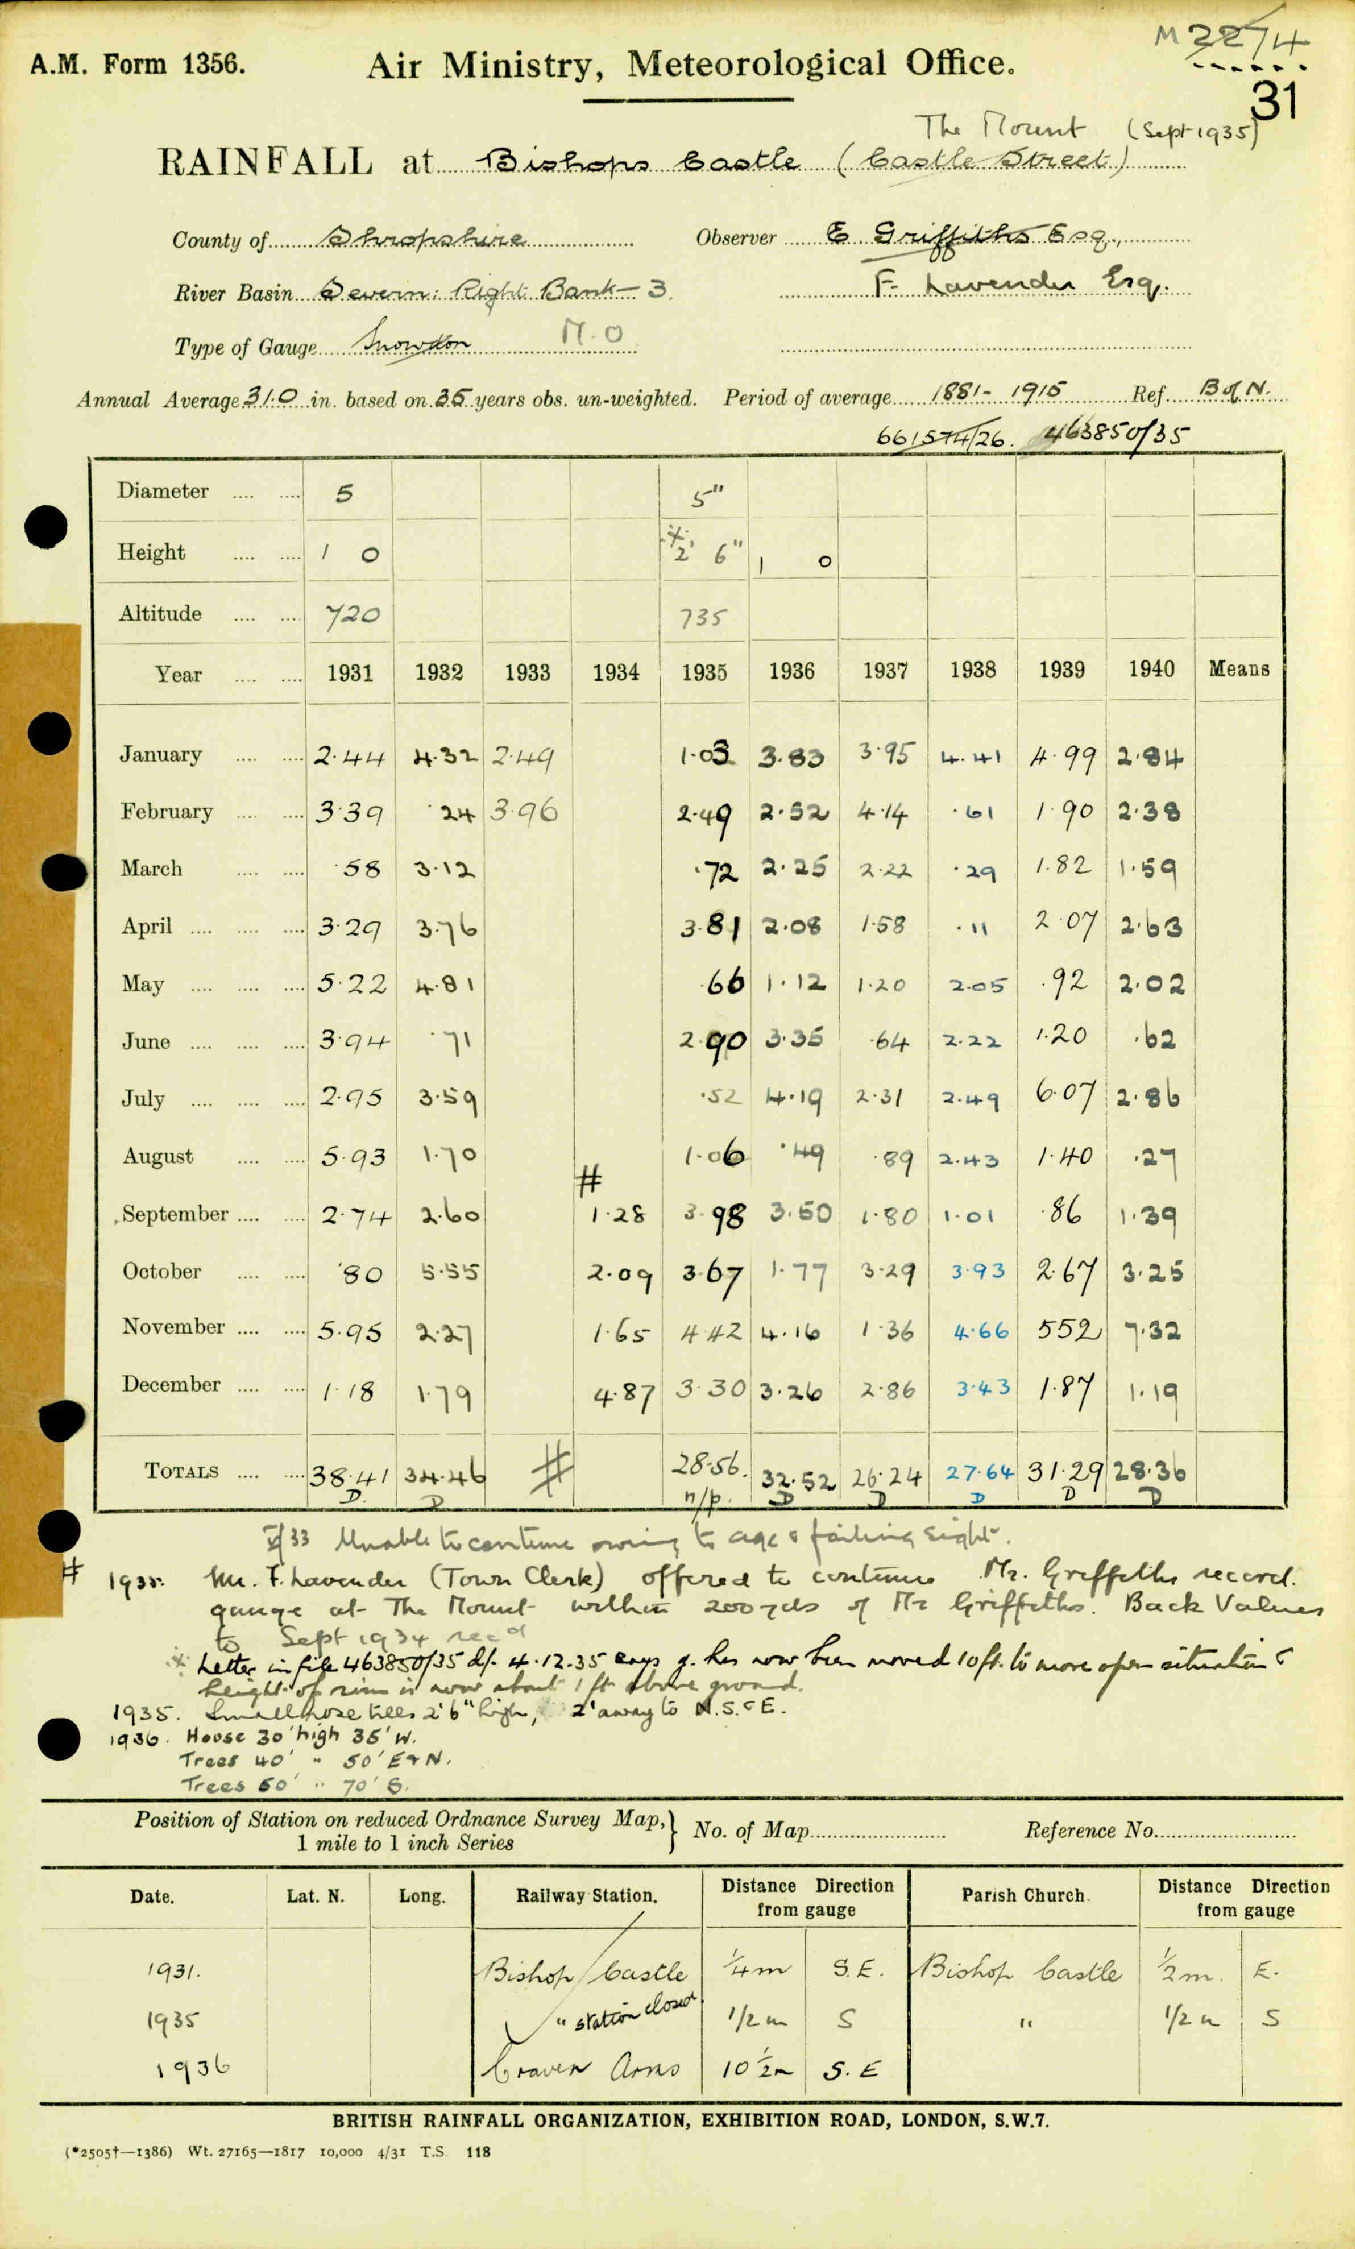 M 2274
A.M. Form 1356. Air Ministry, Meteorological Office.
31
The Mount (Sept 1935)
RAINFALL at Bishops Castle (Castle Street)
County of Shropshire Observer E Griffiths Esq.,
River Basin Severn: Right Bank - 3. F. Lavender Esq.
Type of Gauge Snowdon M.O
Annual Average 31.0 in. based on 35 years obs. un-weighted. Period of average 1881 - 1915 Ref. B of N.
661574/26. 463850/35
Diameter .... .... 5 5"
Height .... .... 1 0 * 2' 6" 1 0
Altitude .... .... 720 735
Year .... .... 1931 1932 1933 1934 1935 1936 1937 1938 1939 1940 Means
January .... .... 2.44 4.32 2.49 1.03 3.83 3.95 4.41 4.99 2.84
February .... .... 3.39 .24 3.96 2.49 2.52 4.14 .61 1.90 2.38
March .... .... .58 3.12 .72 2.25 2.22 .29 1.82 1.59
April .... .... .... 3.29 3.76 3.81 2.08 1.58 .11 2.07 2.63
May .... .... .... 5.22 4.81 .66 1.12 1.20 2.05 .92 2.02
June .... .... .... 3.94 .71 2.90 3.35 .64 2.22 1.20 .62
July .... .... .... 2.95 3.59 .52 4.19 2.31 2.49 6.07 2.86
August .... .... 5.93 1.70 1.06 .49 .89 2.43 1.40 .27
#
September .... .... 2.74 2.60 1.28 3.98 3.50 1.80 1.01 .86 1.39
October .... .... .80 5.55 2.09 3.67 1.77 3.29 3.93 2.67 3.25
November .... .... 5.95 2.27 1.65 4.42 4.16 1.36 4.66 5.52 7.32
December .... .... 1.18 1.79 4.87 3.30 3.26 2.86 3.43 1.87 1.19
TOTALS .... .... 38.41 34.46 # 28.56. 32.52 26.24 27.64 31.29 28.36
D D n/p. D D D D D
/33 Unable to continue owing to age & failing sight.
# 1935. Mr. F. Lavender (Town Clerk) offered to continue Mr. Griffiths record.
gauge at The Mount within 200 yds of Mr Griffiths. Back Values
to Sept 1934 recd
* Letter in file 463850/35 d/. 4.12.35 says g. has now been moved 10ft. to more open situation &
height of rim is now about 1 ft above ground.
1935. Small rose trees 2'6" high, 2' away to N.S.&E.
1936. House 30' high 35' W.
Trees 40' " 50' E & N.
Trees 60' " 70' S.
Position of Station on reduced Ordnance Survey Map,} No. of Map Reference No.
1 mile to 1 inch Series
Date. Lat. N. Long. Railway Station. Distance Direction from gauge Parish Church. Distance Direction from gauge
1931. Bishop Castle 1/4 m S.E. Bishop Castle 1/2 m. E.
1935 " station closed 1/2 m S " 1/2 m S
1936 Craven Arms 10 1/2 m S.E
BRITISH RAINFALL ORGANIZATION, EXHIBITION ROAD, LONDON, S.W.7.
(*2505†—1386) Wt. 27165—1817 10,000 4/31 T.S. 118